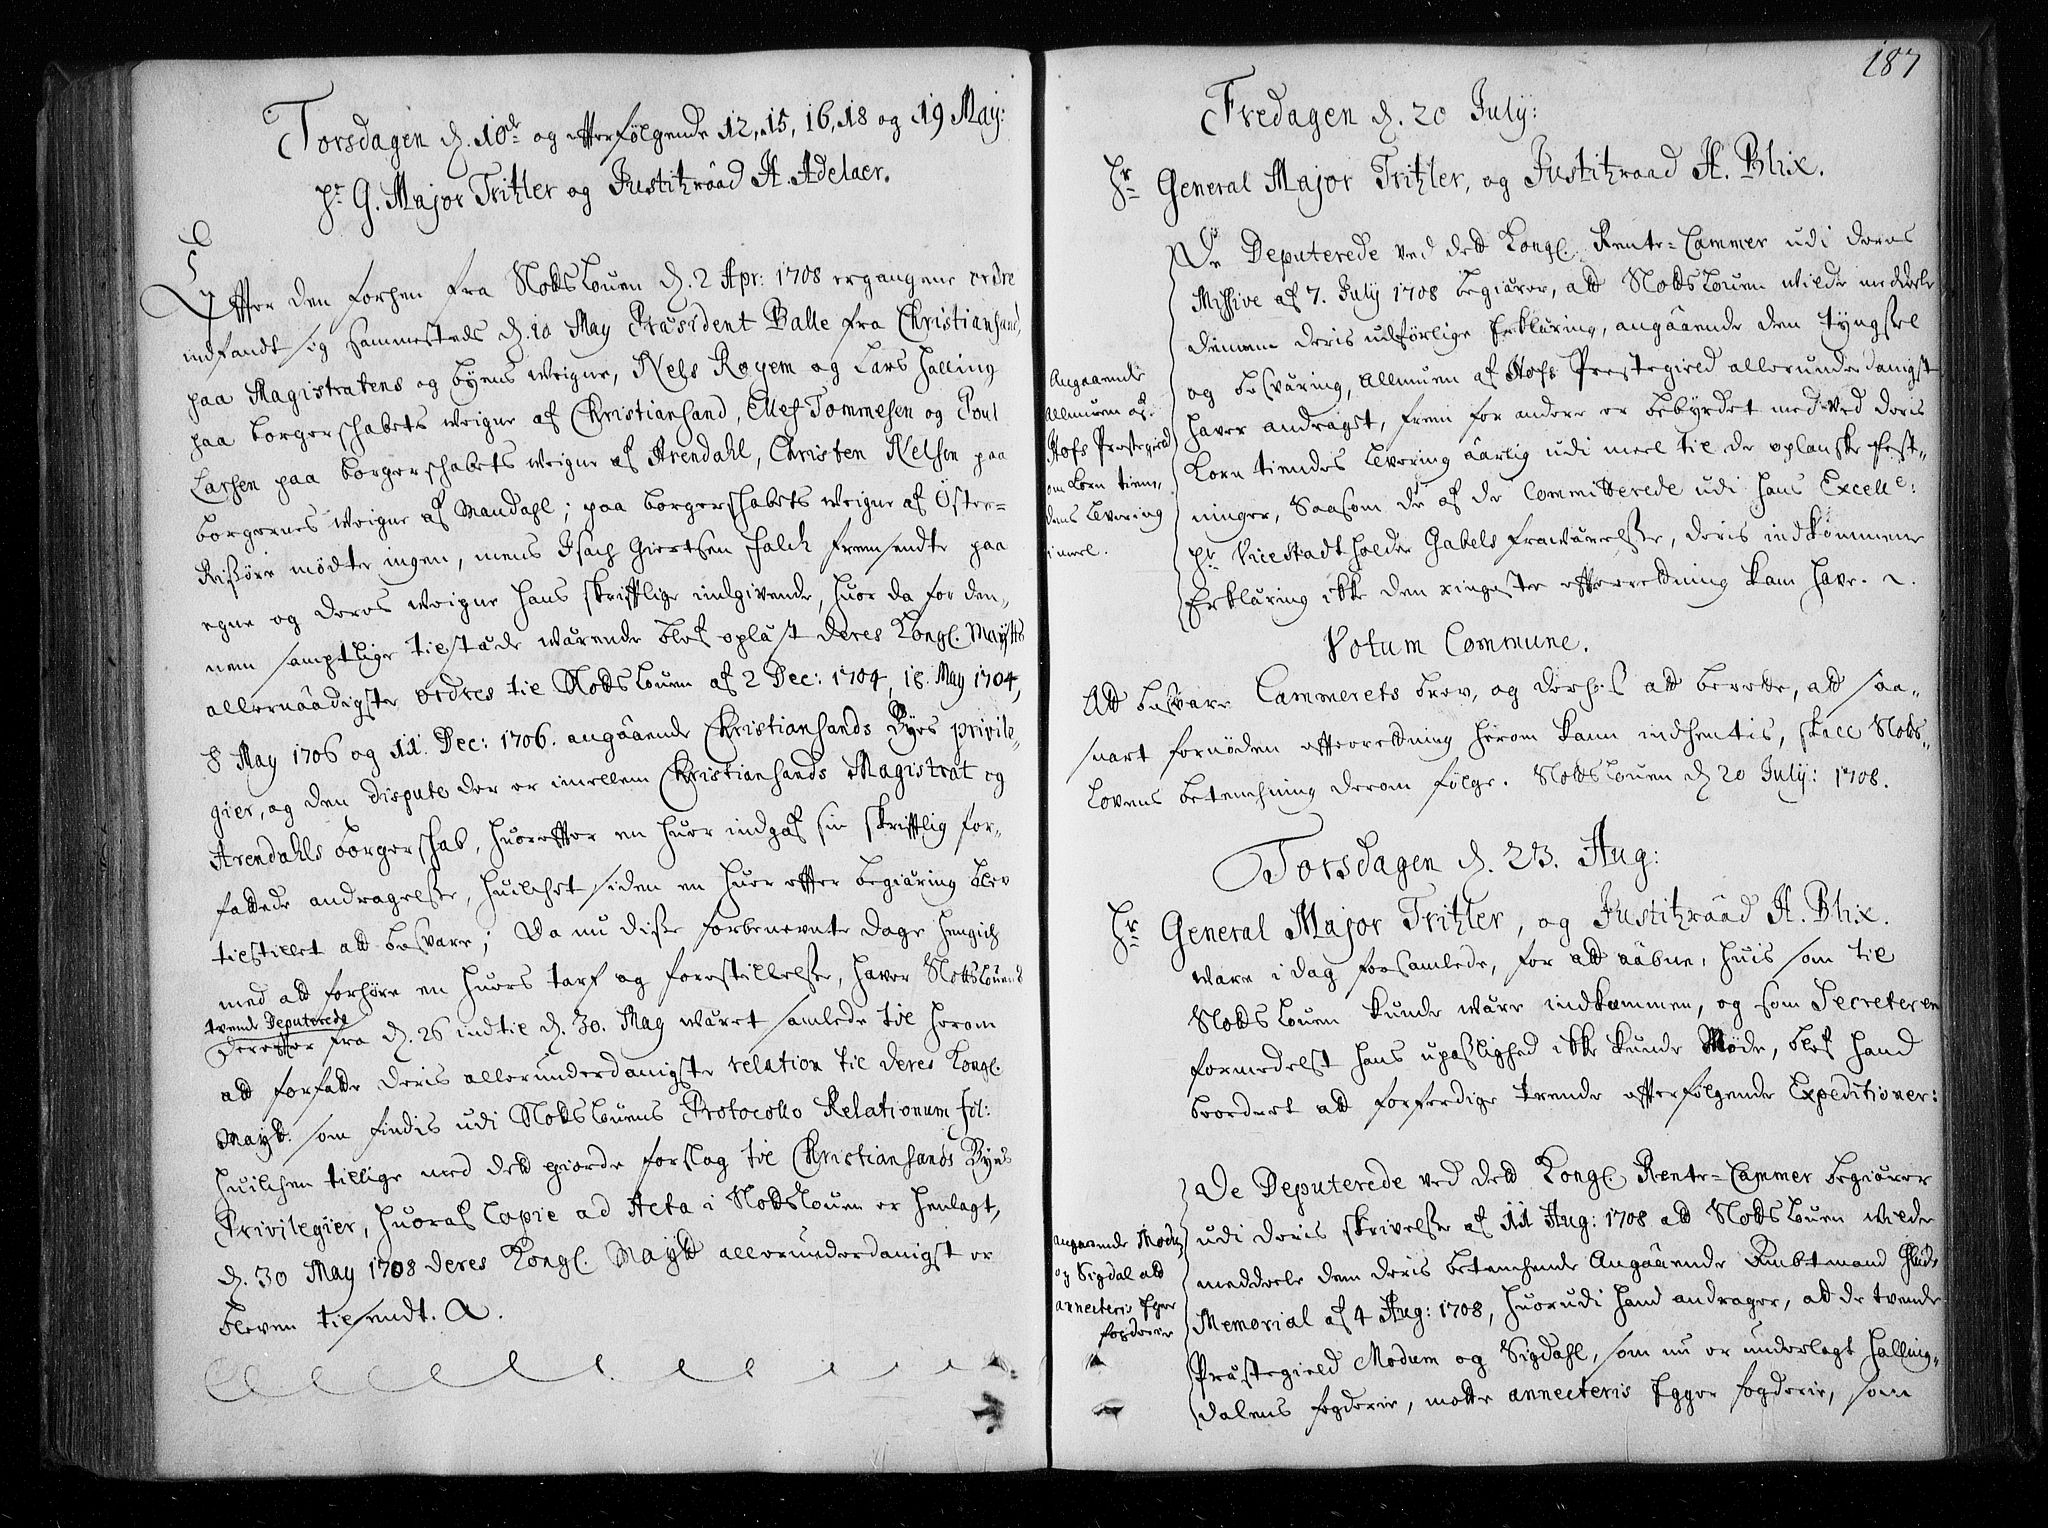 Torsdagen d. 10de og efterfølgende 12, 15, 16, 18 og 19 May:
Hr. G. Major Tritzler og Justitzraad H. Adelaer.
Efter den forhen fra Slotsloven d. 2 Apr: 1708 ergangene ordre
indfandt sig sammesteds d. 10 May Præsident Balle fra Christiansand,
paa Magistratens og byens veigne, Nels Royem og Lars Halling
paa borgerskabets veigne af Christiansand, Ellef Tommesen og Poul
Larsen paa borgerskabets veigne af Arendahl, Christen Nelsen paa
borgernes veigne af Mandahl; paa borgerskabets veigne af Øster-
Risöer mødte ingen, mens Isach Giertsen Falck fremsendte paa
egne og deres veigne hans skrifftlige indgivende, huor da for den-
nem samptlige tilstæde wærende blef oplæst Deres Kongl. Maytts
allernaadigste ordres til Slotsloven af 2 Dec: 1704, 18. May 1704,
8 May 1706 og 11. Dec: 1706. angaaende Christiansands Byes privile-
gier, og den Dispute der er imellem Christiansands Magistrat og
Arendahls borgerskab, huorefter en huer indgaf sin skrifftlig for-
fattede andragelse, huilchet siden en huer efter begiæring blev
tilstillet att besvare; Da nu disse forbenevnte dage hengich
med att forhøre en huers tarf og forestillelse, haver Slotslovens
tvende Deputerede
derefter fra d. 26 indtil d. 30. May wæret samlede til herom
att forfatte deris allerunderdanigste relation til Deres Kongl.
Maytt. som findis udi Slotslovens Protocollo Relationum fol:
huilchen tillige med dett giorde forslag til Christiansands Byes
Privilegier, huoraf Copie ad Acta i Slotsloven er henlagt,
d. 30 May 1708 Deres Kongl. Maytt allerunderdanigst er
bleven tilsendt.
187
Fredagen d. 20 July:
Hr. General Major Tritzler, og Justitzraad H. Blix.
De Deputerede ved dett Kongl. Rente-Cammer udi deres
Missive af 7. July 1708 begiærer, att Slotsloven wilde meddele
dennem deris udførlige Erklæring, angaaende den tyngsel
og besværing, Allmuen af Hofs Prestegield allerunderdanigst
haver andragit, frem for andre er bebyrdet med ved deris
Korn tiendes levering aarlig udi meel til de oplanske fest-
ninger, Saasom de af de Committerede udi hans Excelle:
Hr. Vice Stadtholder Gabels frawærelse, deris indkommene
Erklæring ikke den ringeste efterretning kan have.
Angaaende
Allmuen af
Hofs Prestegield
om Korn tien-
dens levering
i meel.
Votum Commune.
Att besvare Cammerets brev, og derhos att berette, att saa-
snart fornøden efterretning herom kann indhentis, skall Slots-
lovens betenchning derom følge. Slotsloven d. 20 July: 1708.
Torsdagen d. 23. Aug:
Hr. General Major Tritzler, og Justitzraad H. Blix.
ware i dag forsamlede, for att aabne, huis som til
Slotsloven kunde wære indkommen, og som Secreteren
formedelst hans upaslighed ikke kunde Møde, blef hand
beordret att forferdige trende efterfølgende Expeditioner:
De Deputerede ved dett Kongl Rente-Cammer begiærer
udi deris skrivelse af 11 Aug: 1708 att Slotsloven wilde
meddeele dem deris betenchende Angaaende Ambtmand
Memorial af 4 Aug: 1708, huorudi hand andrager, att de tvende
Præstegield Modum og Sigdahl, som nu er underlagt Halling-
dalens fogderie, motte annecteris Egger fogderie, som
angaaende Modum
og Sigdal att
annecteris Eger
fogderie